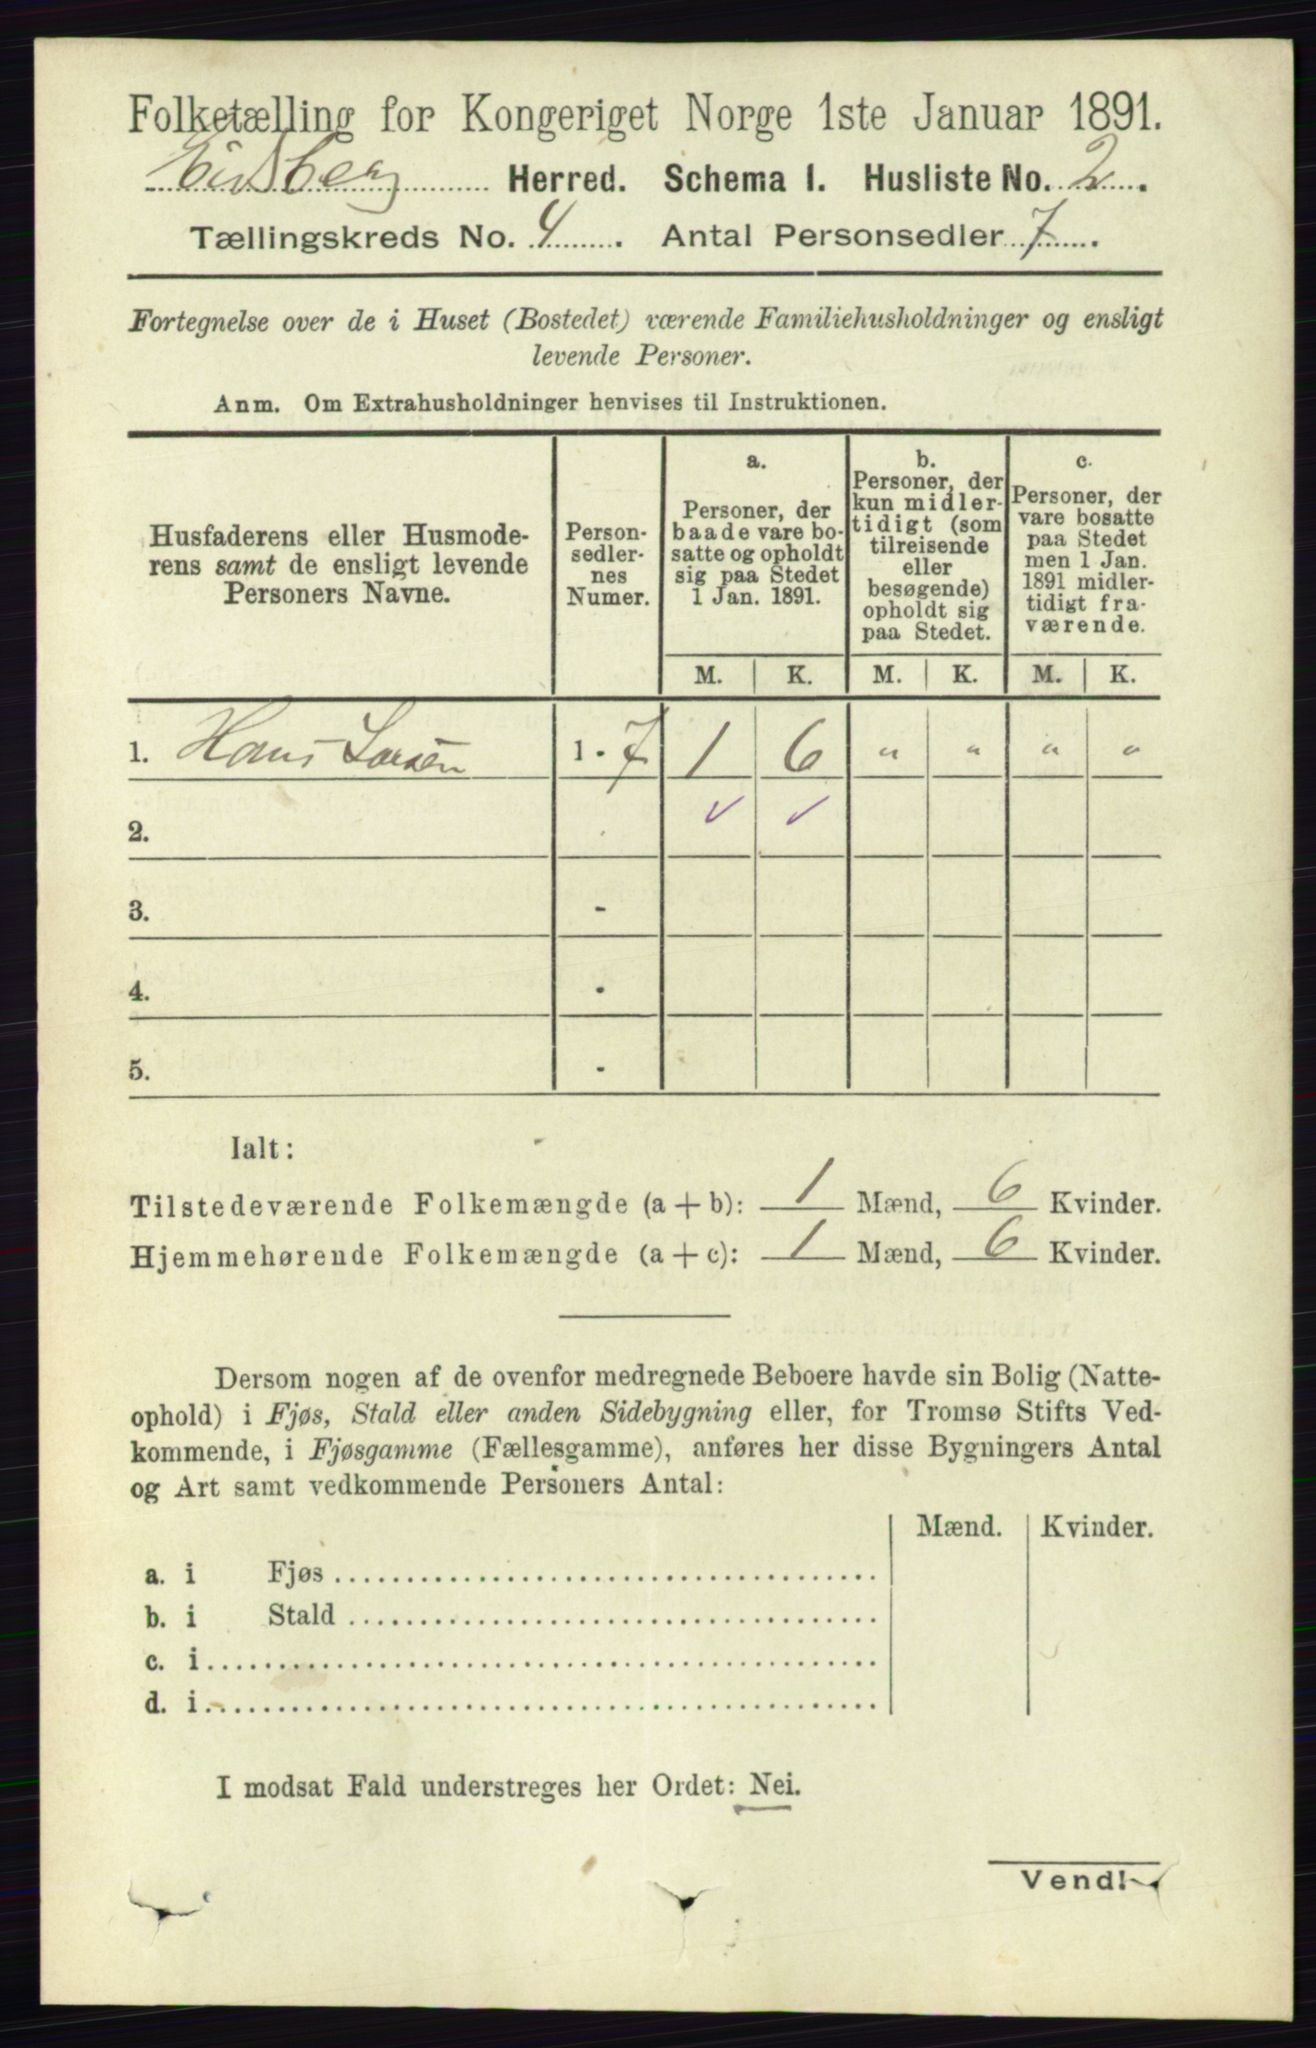 Folketælling for Kongeriget Norge 1ste Januar 1891.
Eidsberg Herred. Schema 1. Husliste No. 2.
Tællingskreds No. 4. Antal Personsedler 7.
Fortegnelse over de i Huset (Bostedet) værende Familiehusholdninger og ensligt
levende Personer.
Anm. Om Extrahusholdninger henvises til Instruktionen.
Husfaderens eller Husmode-
rens samt de ensligt levende
Personers Navne.
Person-
sedler-
nes
Numer.
a.
Personer, der
baade vare bo-
satte og opholdt
sig paa Stedet
1 Jan. 1891.
b.
Personer, der
kun midler-
tidigt (som
tilreisende
eller
besøgende)
opholdt sig
paa Stedet.
c.
Personer, der
vare bosatte
paa Stedet
men 1 Jan.
1891 midler-
tidigt fra-
værende.
M. K. M. K. M. K.
1. Hans Larsen 1 - 7 1 6 " " " "
2. ✓ ✓
3. -
4. -
5. -
Ialt:
Tilstedeværende Folkemængde (a + b): 1 Mænd, 6 Kvinder.
Hjemmehørende Folkemængde (a + c): 1 Mænd, 6 Kvinder.
Dersom nogen af de ovenfor medregnede Beboere havde sin Bolig (Natte-
ophold) i Fjøs, Stald eller anden Sidebygning eller, for Tromsø Stifts Ved-
kommende, i Fjøsgamme (Fællesgamme), anføres her disse Bygningers Antal
og Art samt vedkommende Personers Antal:
Mænd. Kvinder.
a. i Fjøs
b. i Stald
c. i
d. i
I modsat Fald understreges her Ordet: Nei.
Vend!